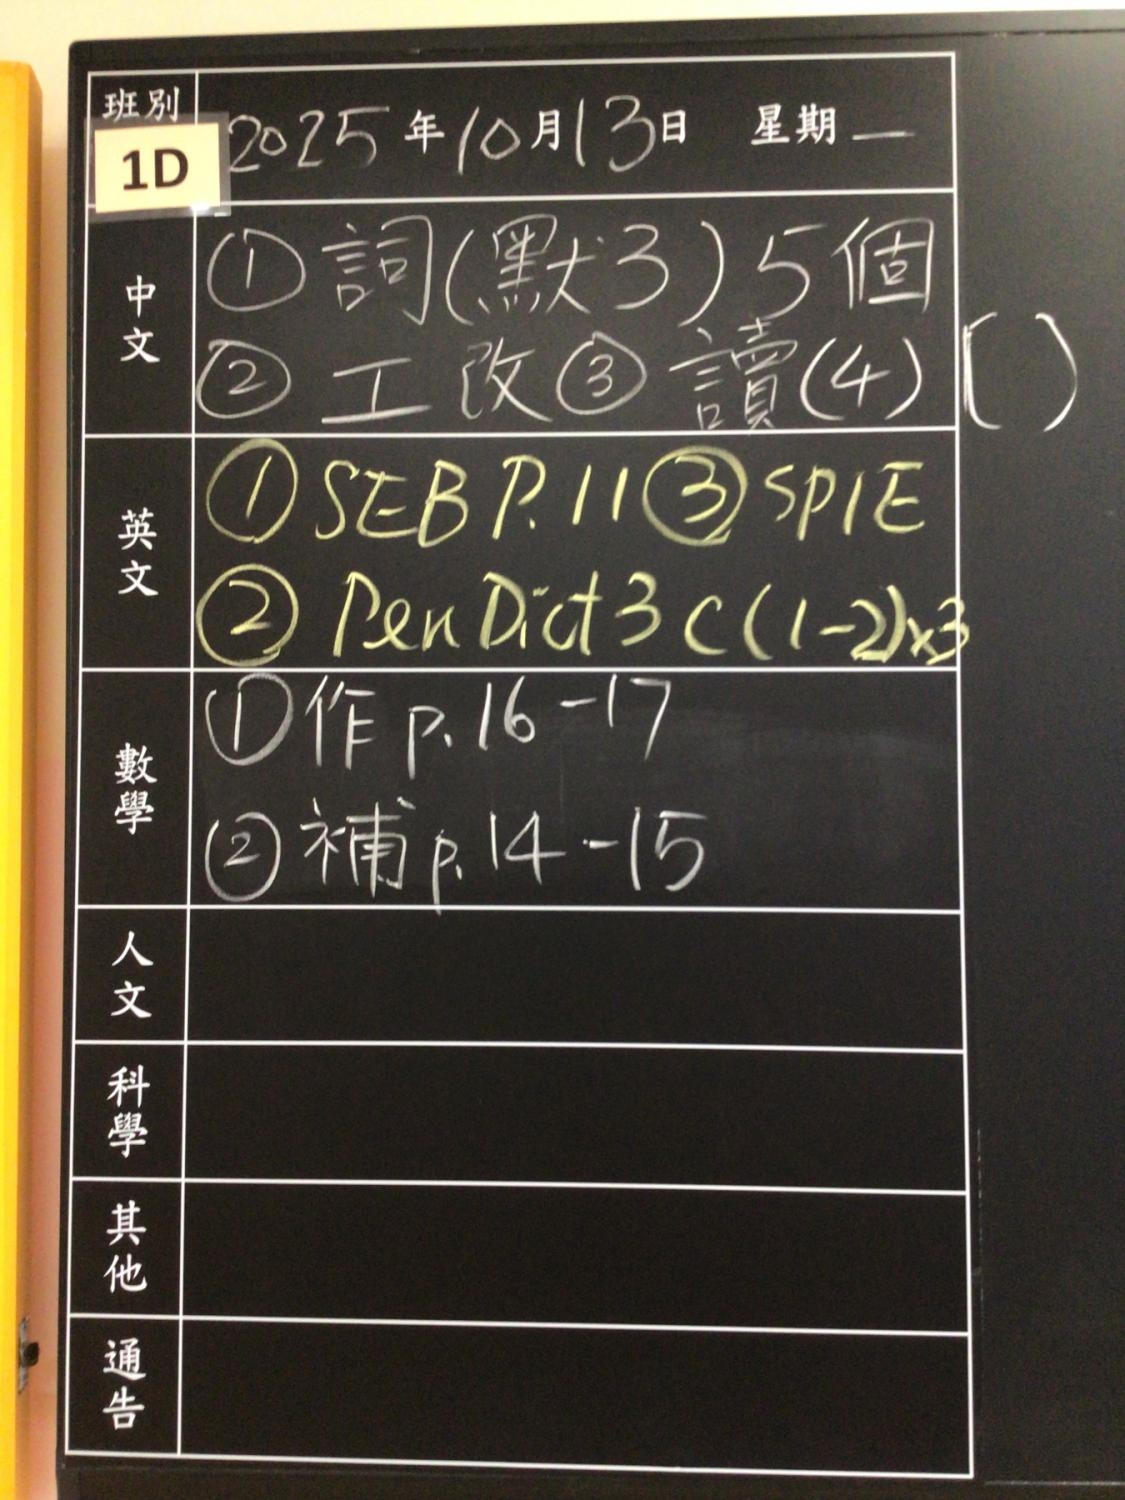 班別 1D 2025年10月13日 星期一
中文
①詞(默3)5個
②工改③讀(4)( )
英文
①SEB P.11③SPIE
②Pen Dict 3 C(1-2)x3
數學
①作p.16-17
②補p.14-15
人文
科學
其他
通告